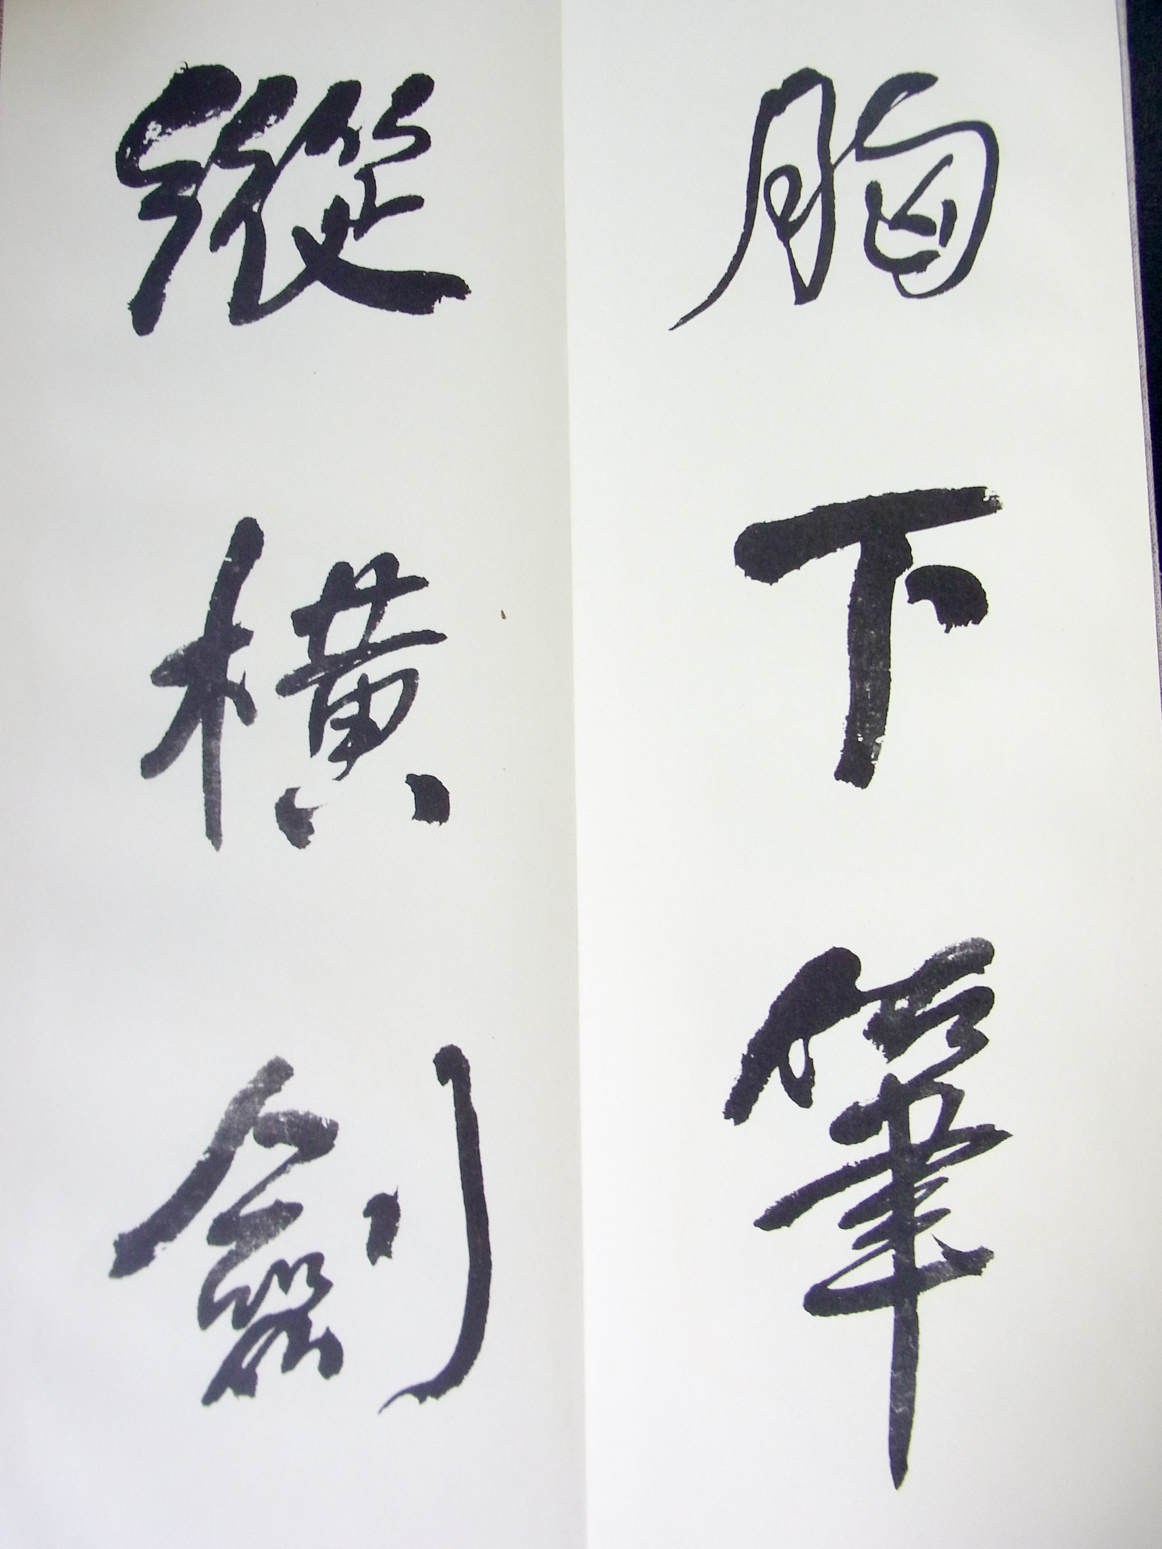 胸下筆
縱橫劍